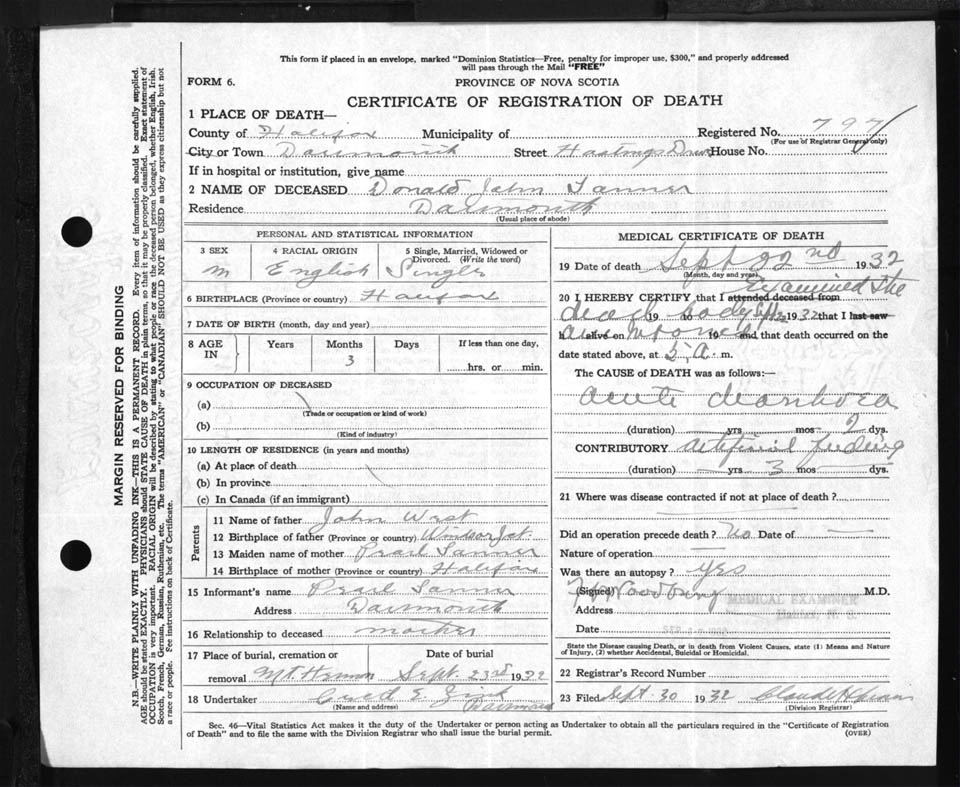 This form if placed in an envelope, marked "Dominion Statistics—Free, penalty for improper use, $300," and properly addressed
will pass through the Mail "FREE"
FORM 6. PROVINCE OF NOVA SCOTIA
CERTIFICATE OF REGISTRATION OF DEATH
1 PLACE OF DEATH—
County of Halifax Municipality of Registered No. 797
(For use of Registrar General only)
City or Town Dartmouth Street Hastings Drive House No.
If in hospital or institution, give name
2 NAME OF DECEASED Donald John Tanner
Residence Dartmouth
(Usual place of abode)
PERSONAL AND STATISTICAL INFORMATION
3 SEX 4 RACIAL ORIGIN 5 Single, Married, Widowed or
Divorced. (Write the word)
m English Single
6 BIRTHPLACE (Province or country) Halifax
7 DATE OF BIRTH (month, day and year)
8 AGE IN Years Months Days If less than one day,
3
hrs. or min.
9 OCCUPATION OF DECEASED
(a)
(Trade or occupation or kind of work)
(b)
(Kind of industry)
10 LENGTH OF RESIDENCE (in years and months)
(a) At place of death
(b) In province
(c) In Canada (if an immigrant)
Parents
11 Name of father John West
12 Birthplace of father (Province or country) Windsor Jct.
13 Maiden name of mother Pearl Tanner
14 Birthplace of mother (Province or country) Halifax
15 Informant's name Pearl Tanner
Address Dartmouth
16 Relationship to deceased mother
17 Place of burial, cremation or Date of burial
removal Mt. Hermon Sept. 23rd 1932
18 Undertaker E. Dartmouth
(Name and address)
MEDICAL CERTIFICATE OF DEATH
19 Date of death Sept 22nd 1932
(Month, day and year)
20 I HEREBY CERTIFY that I attended deceased from examined the
dead body Sept 1932 that I last saw
h alive on 19 and that death occurred on the
date stated above, at 5 a. m.
The CAUSE of DEATH was as follows:—
acute diarrhoea
(duration) yrs mos 2 dys.
CONTRIBUTORY artificial feeding
(duration) yrs 3 mos dys.
21 Where was disease contracted if not at place of death?
Did an operation precede death? No Date of
Nature of operation
Was there an autopsy? yes
(Signed) MEDICAL EXAMINER M.D.
Address Halifax, N. S.
Date
State the Disease causing Death, or in death from Violent Causes, state (1) Means and Nature
of Injury, (2) whether Accidental, Suicidal or Homicidal.
22 Registrar's Record Number
23 Filed Sept 30 1932
(Division Registrar)
Sec. 46—Vital Statistics Act makes it the duty of the Undertaker or person acting as Undertaker to obtain all the particulars required in the "Certificate of Registration
of Death" and to file the same with the Division Registrar who shall issue the burial permit. (OVER)
MARGIN RESERVED FOR BINDING
N.B.—WRITE PLAINLY WITH UNFADING INK—THIS IS A PERMANENT RECORD. Every item of information should be carefully supplied.
AGE should be stated EXACTLY. PHYSICIANS should STATE CAUSE OF DEATH in plain terms, so that it may be properly classified. Exact statement of
OCCUPATION is very important. RACIAL ORIGIN will be described by stating to what people or race the deceased person belonged, whether English, Irish,
Scotch, French, German, Russian, Ruthenian, etc. The terms "AMERICAN" or "CANADIAN" SHOULD NOT BE USED as they express citizenship but not
a race or people. Fee instructions on back of Certificate.